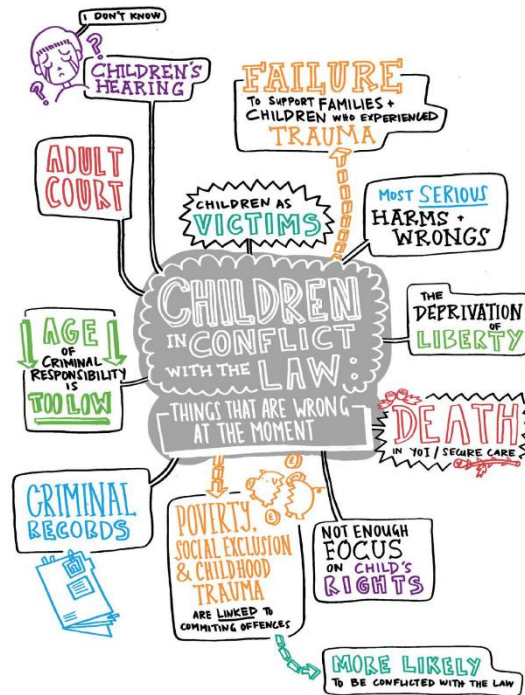 I DON'T KNOW
? ? ?
CHILDREN'S
HEARING
FAILURE
TO SUPPORT FAMILIES +
CHILDREN WHO EXPERIENCED
TRAUMA
ADULT
COURT
CHILDREN AS
VICTIMS
MOST SERIOUS
HARMS +
WRONGS
CHILDREN
IN CONFLICT
WITH THE LAW:
THINGS THAT ARE WRONG
AT THE MOMENT
THE
DEPRIVATION
OF
LIBERTY
AGE
OF
CRIMINAL
RESPONSIBILITY
IS
TOO LOW
DEATH
IN YOI / SECURE CARE
CRIMINAL
RECORDS
POVERTY,
SOCIAL EXCLUSION
& CHILDHOOD
TRAUMA
ARE LINKED TO
COMMITING OFFENCES
NOT ENOUGH
FOCUS
ON CHILD'S
RIGHTS
MORE LIKELY
TO BE CONFLICTED WITH THE LAW